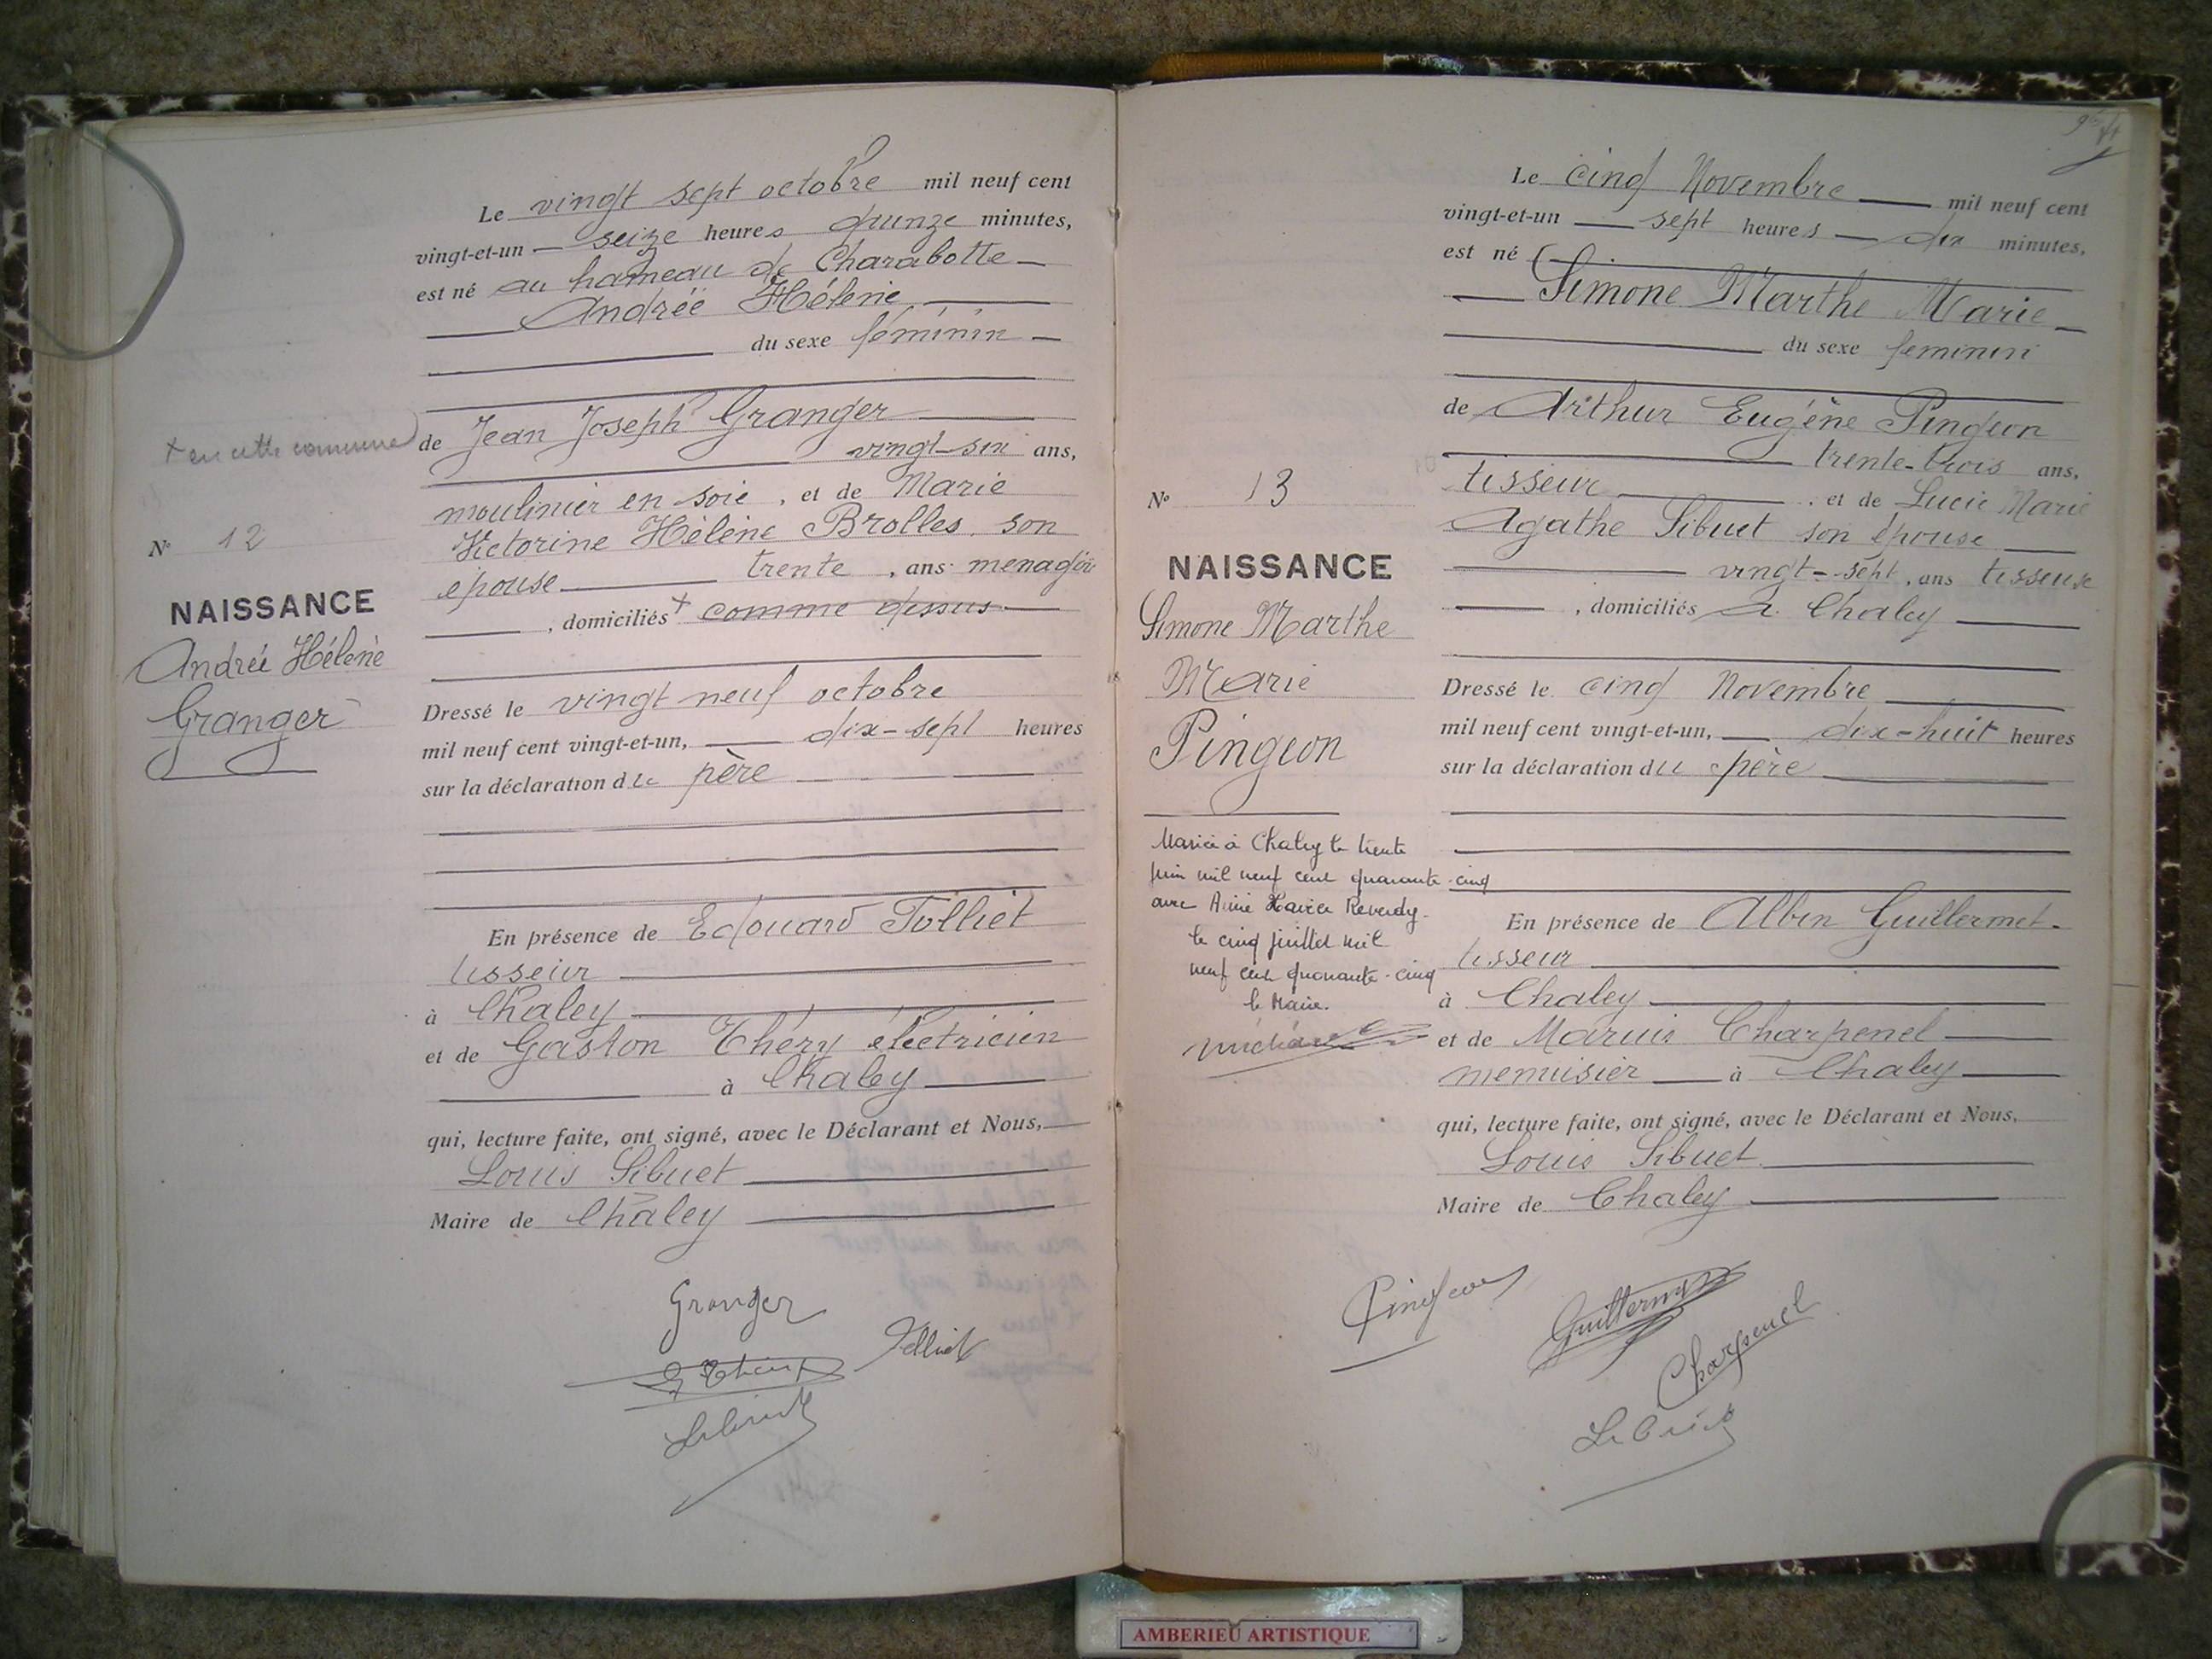 Le vingt sept octobre mil neuf cent
vingt-et-un — seize heures quinze minutes,
est né au hameau de Charabotte —
Andrée Hélène
du sexe féminin —
+ en cette commune
de Jean Joseph Granger
vingt-six ans,
moulinier en soie, et de Marie
Victorine Hélène Brolles son
épouse trente, ans menagère
, domiciliés + comme dessus
N° 12
NAISSANCE
Andrée Hélène
Granger
Dressé le vingt neuf octobre
mil neuf cent vingt-et-un, — dix-sept heures
sur la déclaration du père
En présence de Edouard Tolliet
tisseur
à Chaley
et de Gaston Théry électricien
à Chaley
qui, lecture faite, ont signé, avec le Déclarant et Nous,
Louis Sibuet
Maire de Chaley
Granger
G Théry
Tolliet
Sibuet
Le cinq Novembre — mil neuf cent
vingt-et-un — sept heures — dix minutes,
est né
Simone Marthe Marie
du sexe feminin
de Arthur Eugène Pingeon
trente-trois ans,
tisseur, et de Lucie Marie
Agathe Sibuet son épouse
vingt-sept, ans tisseuse
, domiciliés à Chaley
N° 13
NAISSANCE
Simone Marthe
Marie
Pingeon
Mariée à Chaley le trente
juin mil neuf cent quarante-cinq
avec Aimé Xavier Reverdy.
le cinq juillet mil
neuf cent quarante-cinq
le Maire.
Dressé le cinq Novembre
mil neuf cent vingt-et-un, — dix-huit heures
sur la déclaration du père
En présence de Albin Guillermet
tisseur
à Chaley
et de Marius Charpenel
menuisier — à Chaley
qui, lecture faite, ont signé, avec le Déclarant et Nous,
Louis Sibuet
Maire de Chaley
Pingeon
Guillermet
Charpenel
Sibuet
AMBERIEU ARTISTIQUE